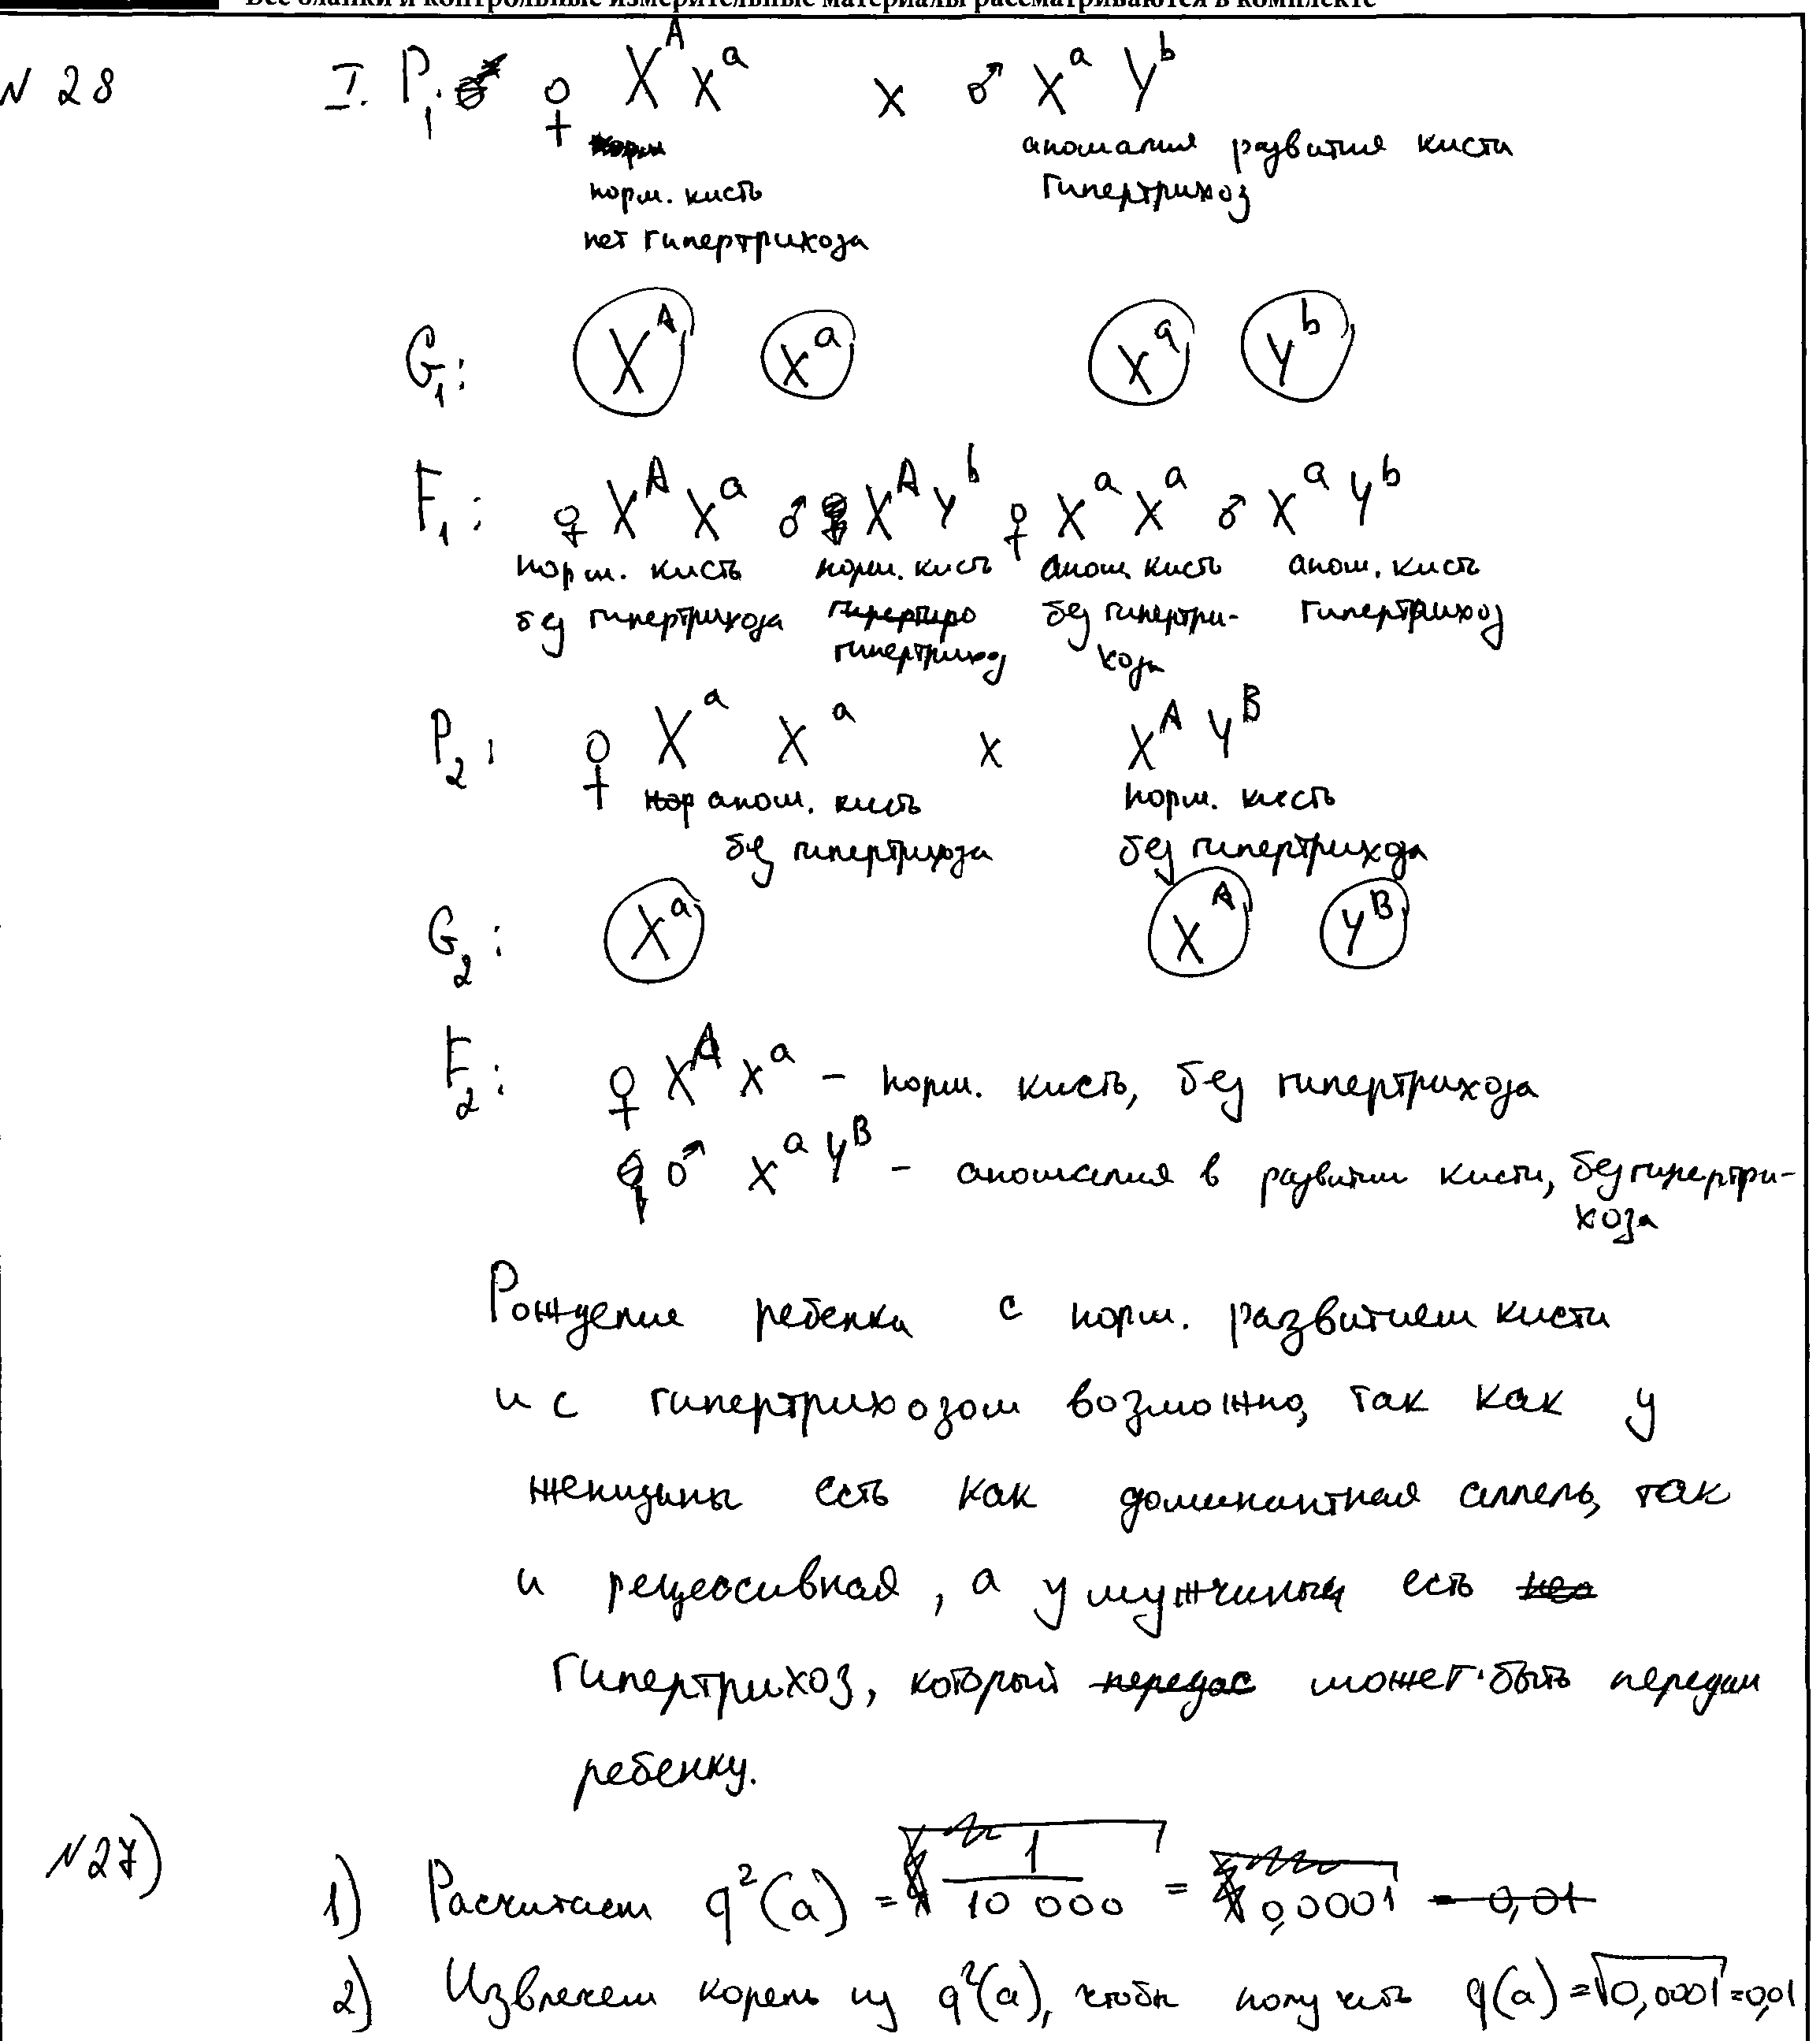 Все бланки и контрольные измерительные материалы рассматриваются в комплекте
N 28 I. P₁: ♀ X^A X^a x ♂ X^a Y^b
норм. кисть аномалия развития кисти
нет гипертрихоза гипертрихоз
G₁: X^A X^a X^a Y^b
F₁: ♀ X^A X^a ♂ X^A Y^b ♀ X^a X^a ♂ X^a Y^b
норм. кисть норм. кисть аном. кисть аном. кисть
без гипертрихоза гипертрихоз без гипертри-хоза гипертрихоз
P₂: ♀ X^a X^a x X^A Y^B
аном. кисть норм. кисть
без гипертрихоза без гипертрихоза
G₂: X^a X^A Y^B
F₂: ♀ X^A X^a – норм. кисть, без гипертрихоза
♂ X^a Y^B – аномалия в развитии кисти, без гипертри-
хоза
Рождение ребенка с норм. развитием кисти
и с гипертрихозом возможно, так как у
женщины есть как доминантная аллель, так
и рецессивная, а у мужчины есть
гипертрихоз, который может быть передан
ребенку.
N27)
1) Расчитаем q²(a) = 1/10 000 = 0,0001
2) Извлечем корень из q²(a), чтобы получить q(a) = √0,0001 = 0,01